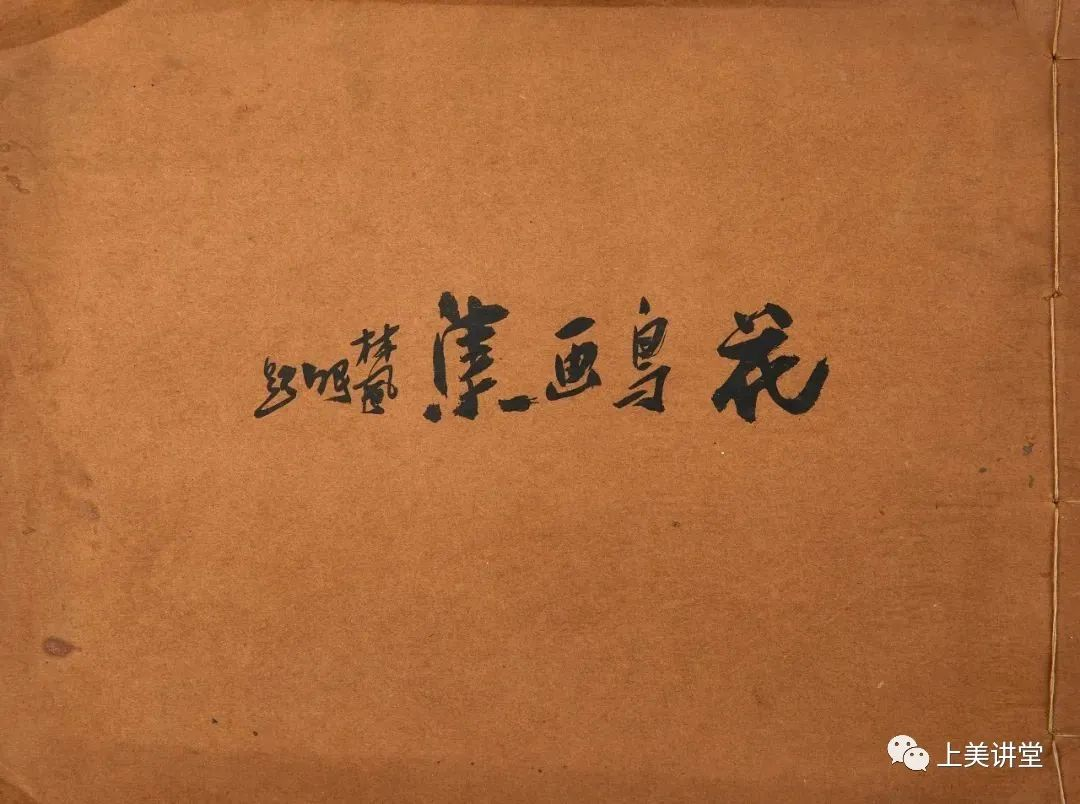 花鸟画集
林风眠题
上美讲堂